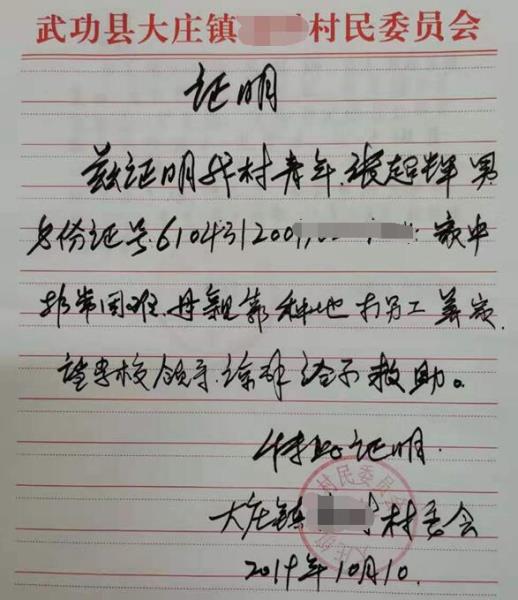 武功县大庄镇 村民委员会
证明
兹证明我村青年张超辉 男
身份证号6104312001 家中
非常困难.母亲靠种地 打另工养家
望学校领导 给予救助。
特此证明.
村民委员
大庄镇 村委会
2019年10月10.